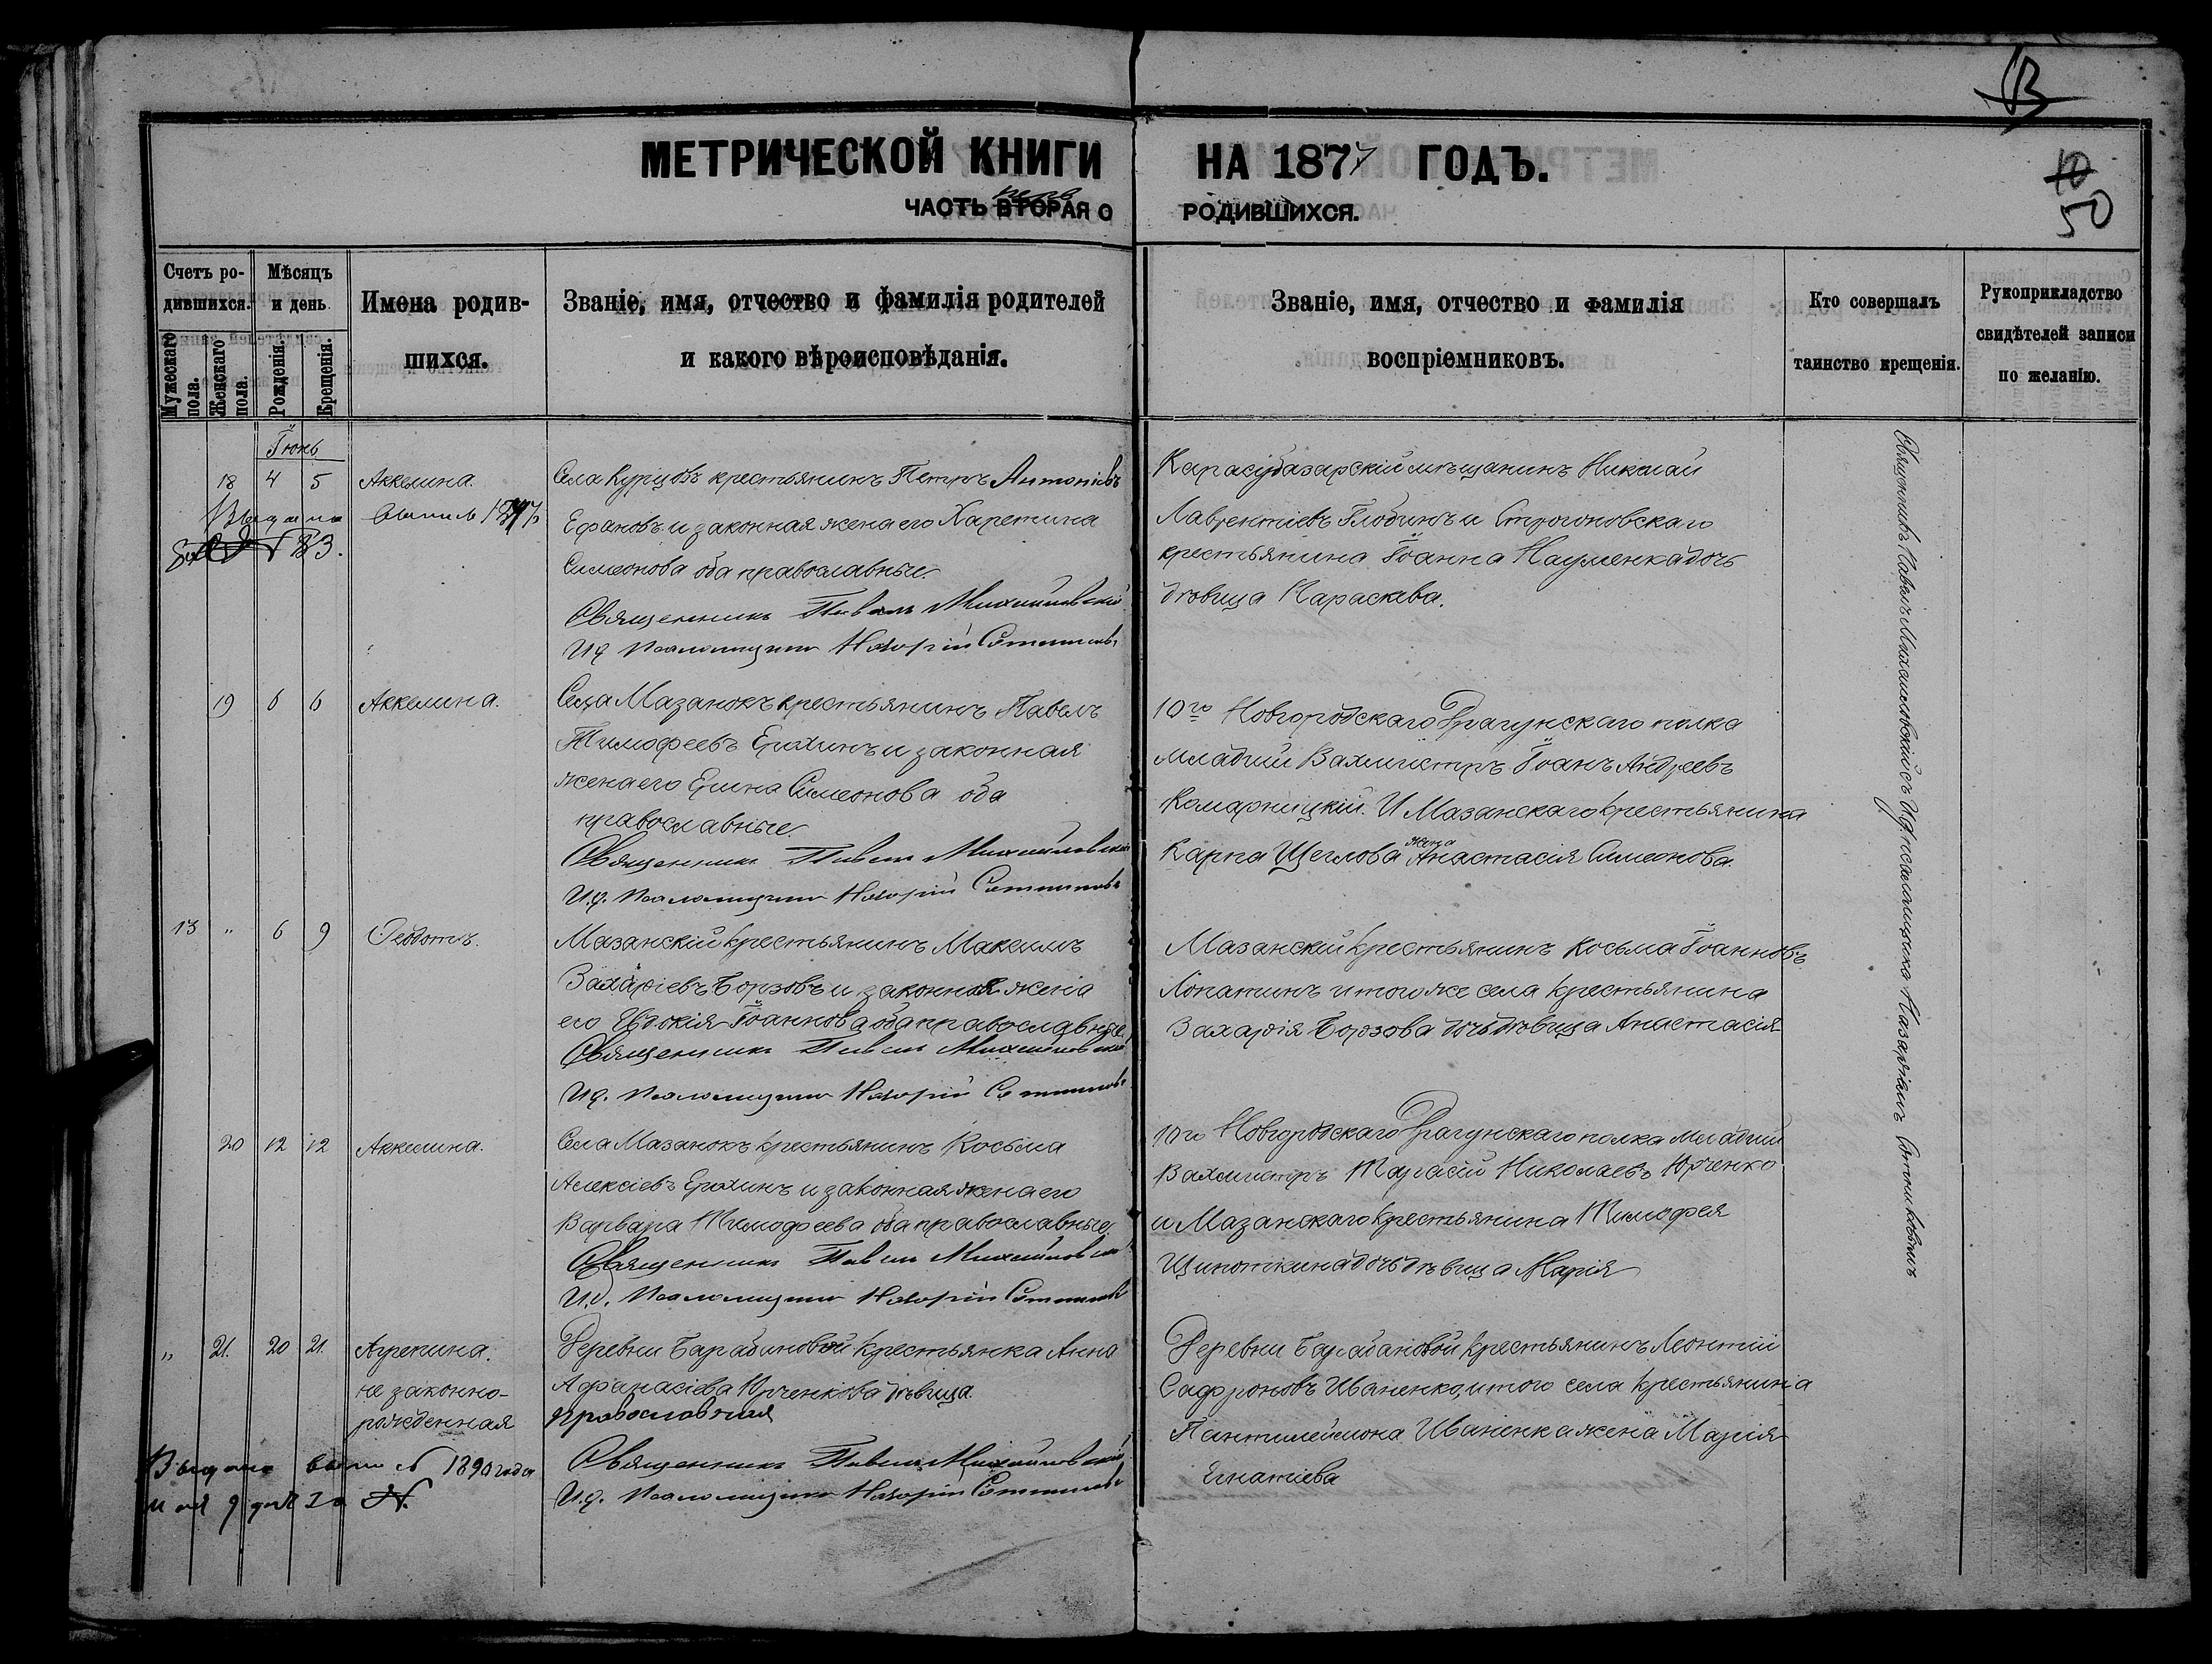 МЕТРИЧЕСКОЙ КНИГИ НА 1877 ГОДЪ.
ЧАСТЬ ВТОРАЯ О РОДИВШИХСЯ.
перв
50
Счетъ ро-
дившихся.
Мужескаго пола.
Женскаго пола.
Мѣсяцъ
и день
Рожденія.
Крещенія.
Имена родив-
шихся.
Званіе, имя, отчество и фамилія родителей
и какого вѣроисповѣданія.
Званіе, имя, отчество и фамилія
воспріемниковъ.
Кто совершалъ
таинство крещенія.
Рукоприкладство
свидѣтелей записи
по желанію.
Іюнь
18 4 5 Аккелина.
Выдана
Села Курцовъ крестьянинъ Петръ Антоніевъ
Ефановъ и законная жена его Харетина
Симеонова оба православные.
Священникъ Павелъ Михайловскій
И.д. псаломщика Назарій Сотниковъ
Карасубазарскій мѣщанинъ Николай
Лаврентіевъ Глобинъ и Строгоновскаго
крестьянина Іоанна Науменка дочь
дѣвица Параскева.
19 6 6 Аккелина.
Села Мазанокъ крестьянинъ Павелъ
Тимофеевъ Ерохинъ и законная
жена его Ирина Симеонова оба
православные.
Священникъ Павелъ Михайловскій
И.д. псаломщика Назарій Сотниковъ
10го Новгородскаго Драгунскаго полка
младшій Вахмистръ Іоанъ Андреевъ
Комарницкій. И Мазанскаго крестьянина
Карпа Щеглова жена Анастасія Симеонова.
13 " 6 9 Ѳеодотъ.
Мазанскій крестьянинъ Максимъ
Захаріевъ Борзовъ и законная жена
его Евдокія Іоаннова оба православные.
Священникъ Павелъ Михайловскій
И.д. псаломщика Назарій Сотниковъ
Мазанскій крестьянинъ Косьма Іоанновъ
Лопатинъ и того же села крестьянина
Захарія Борзова дочь дѣвица Анастасія
20 12 12 Аккелина.
Села Мазанокъ крестьянинъ Косьма
Алексіевъ Ерохинъ и законная жена его
Варвара Тимофеева оба православные.
Священникъ Павелъ Михайловскій
И.д. псаломщика Назарій Сотниковъ
10го Новгородскаго Драгунскаго полка младшій
Вахмистръ Тарасій Николаевъ Юрченко
и Мазанскаго крестьянина Тимофея
Щипоткина дочь дѣвица Марія
" 21. 20 21. Агрепина.
не законно-
рожденная
Деревни Барабановой крестьянка Анна
Афанасіева Юрченкова дѣвица
православная
Священникъ Павелъ Михайловскій
И.д. псаломщика Назарій Сотниковъ
Деревни Барабановой крестьянинъ Леонтій
Сафроновъ Иваненко, и того села крестьянина
Пантилеймона Иваненка жена Марія
Игнатіева
Выдана 1890 года
мая 9 дня
Священникъ Павелъ Михаиловскій съ И.д. псаломщика Назаріемъ Сотниковымъ